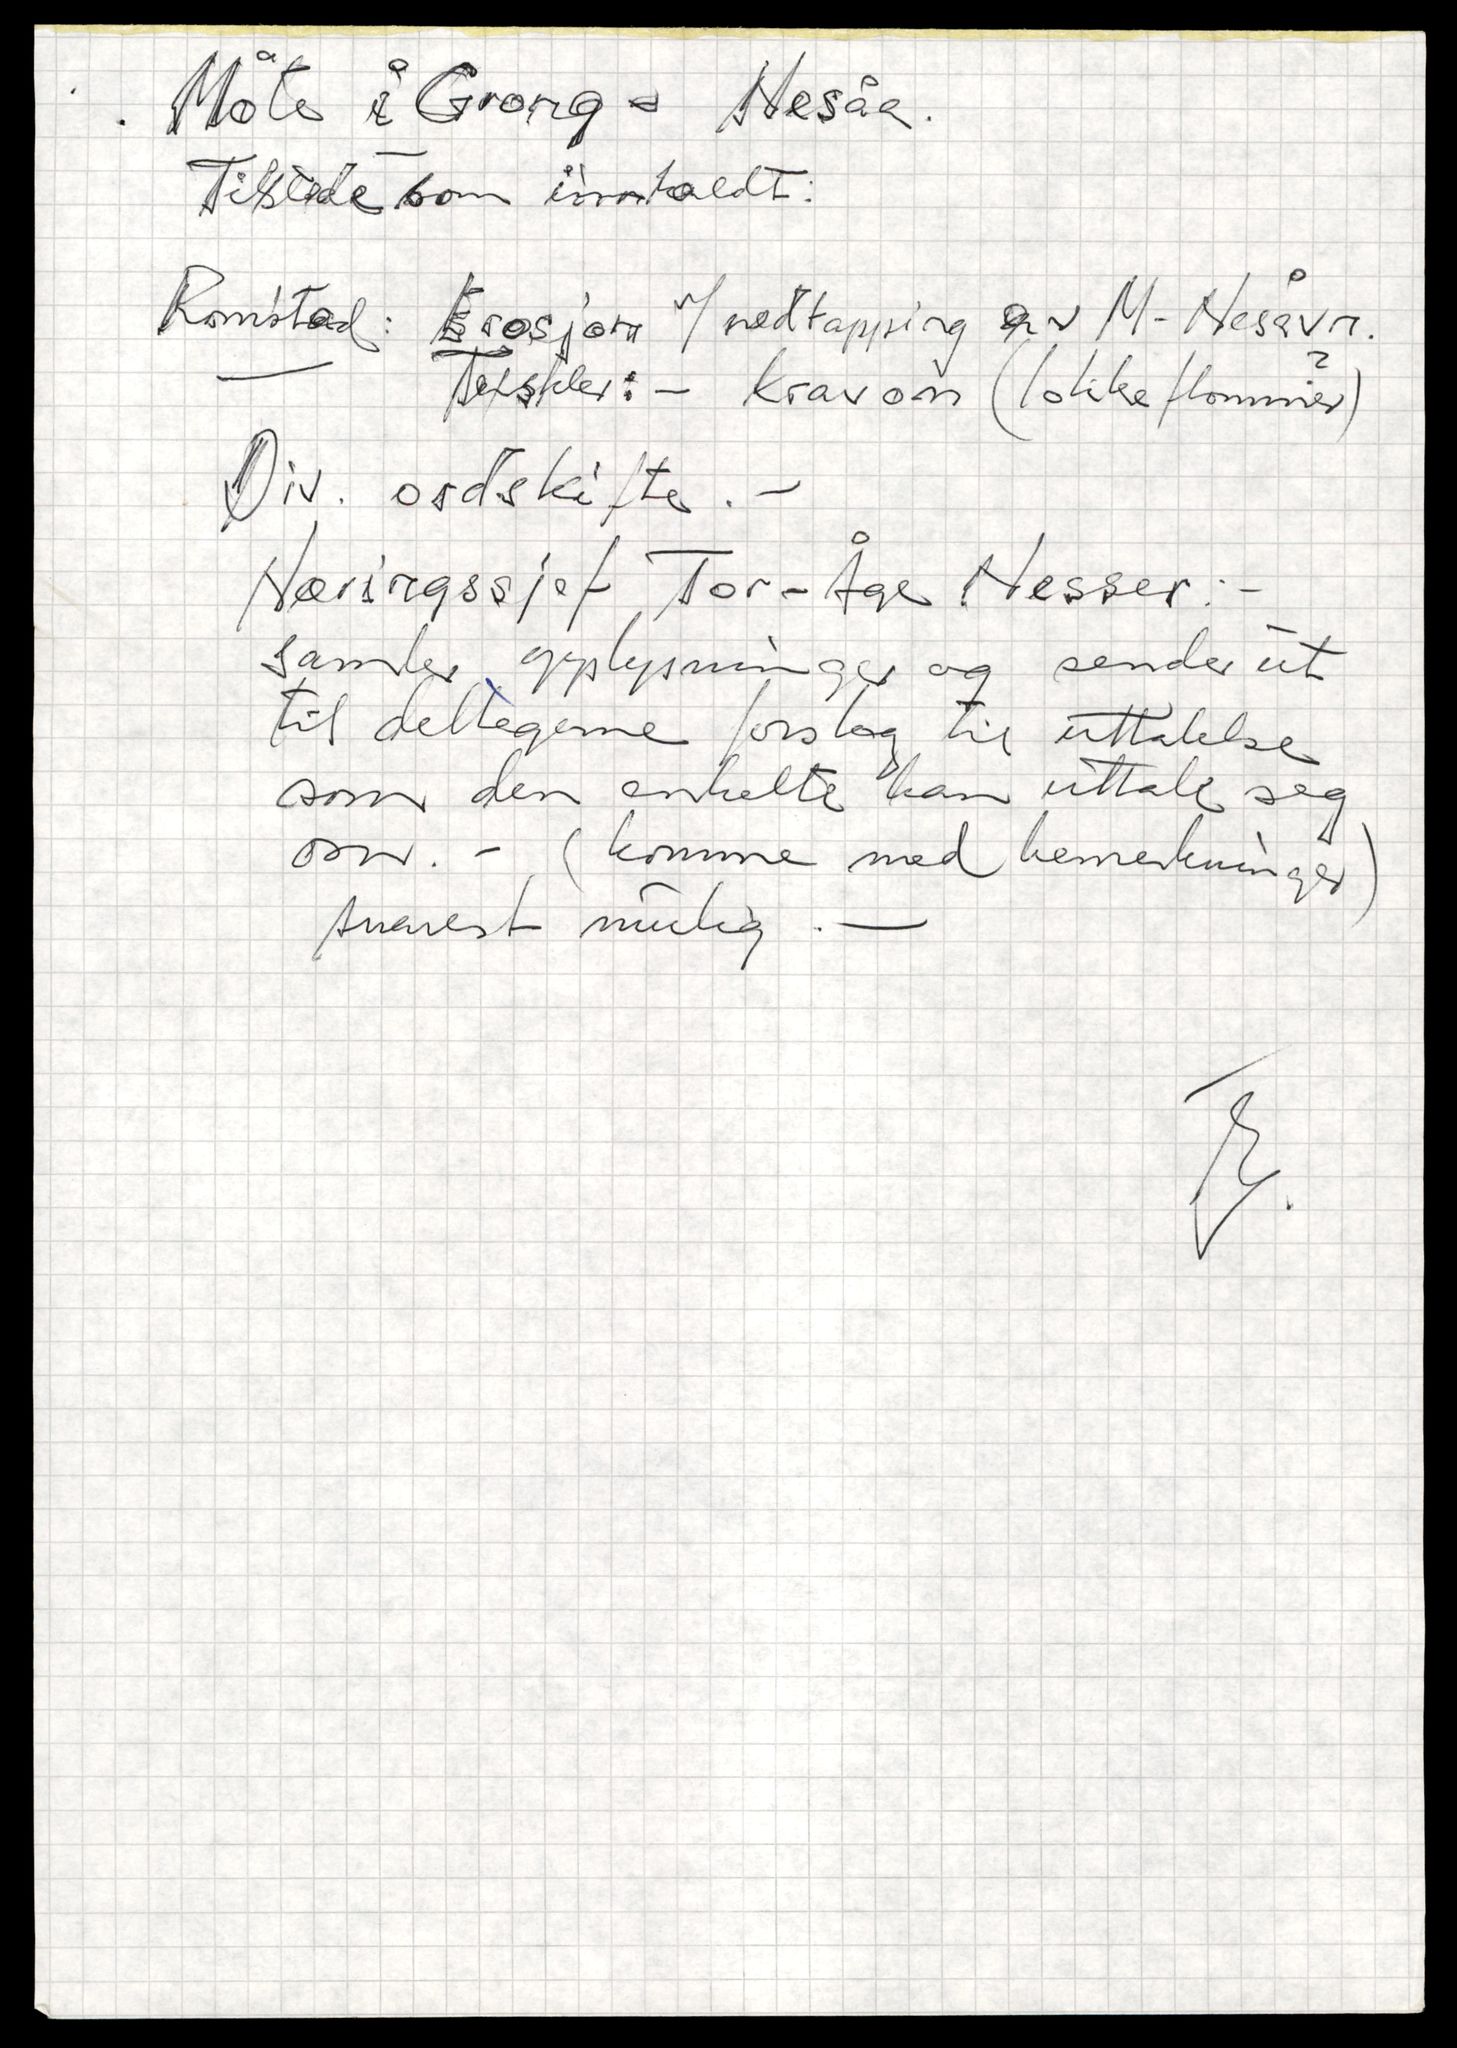 Møte i Grong - Nesåa.
Tilstede som innkaldt:
Romstad: Erosjon v/ nedtapping av M-Nesåvn.
Terskler: - Krav om (lokkeflommer)
Div. ordskifte. -
Næringssjef Tor-Åge Nesser: -
samler opplysninger og sender ut
til deltagerne forslag til uttalelse
som den enkelte kan uttale seg
om. - (komme med bemerkninger)
snarest mulig. -